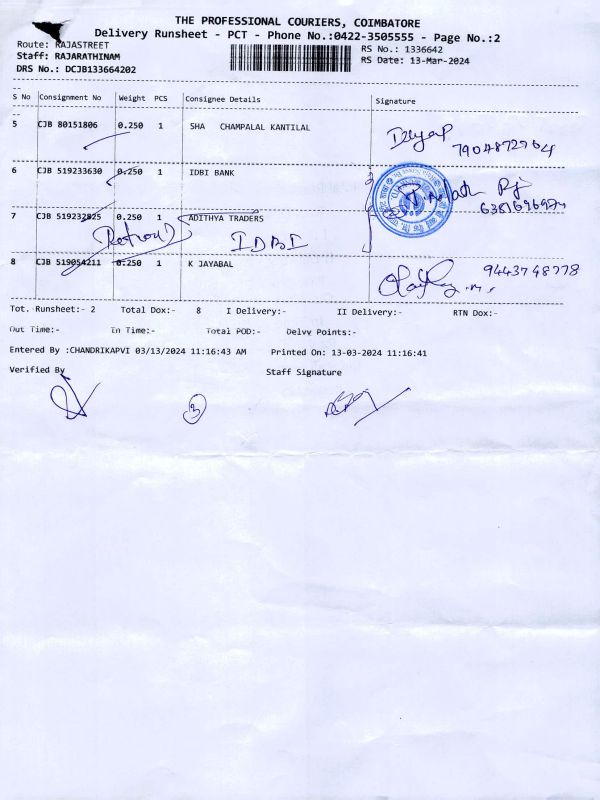 THE PROFESSIONAL COURIERS, COIMBATORE
Delivery Runsheet - PCT - Phone No.:0422-3505555 - Page No.:2
Route: RAJASTREET
Staff: RAJARATHINAM
DRS No.: DCJB133664202
RS No.: 1336642
RS Date: 13-Mar-2024
S No Consignment No Weight PCS Consignee Details Signature
5 CJB 80151806 0.250 1 SHA CHAMPALAL KANTILAL
6 CJB 519233630 0.250 1 IDBI BANK
7 CJB 519232825 0.250 1 ADITHYA TRADERS
IDBI
8 CJB 519054211 0.250 1 K JAYABAL
9443748778
Tot. Runsheet:- 2 Total Dox:- 8 I Delivery:- II Delivery:- RTN Dox:-
Out Time:- In Time:- Total POD:- Delvv Points:-
Entered By :CHANDRIKAPVI 03/13/2024 11:16:43 AM Printed On: 13-03-2024 11:16:41
Verified By Staff Signature
3